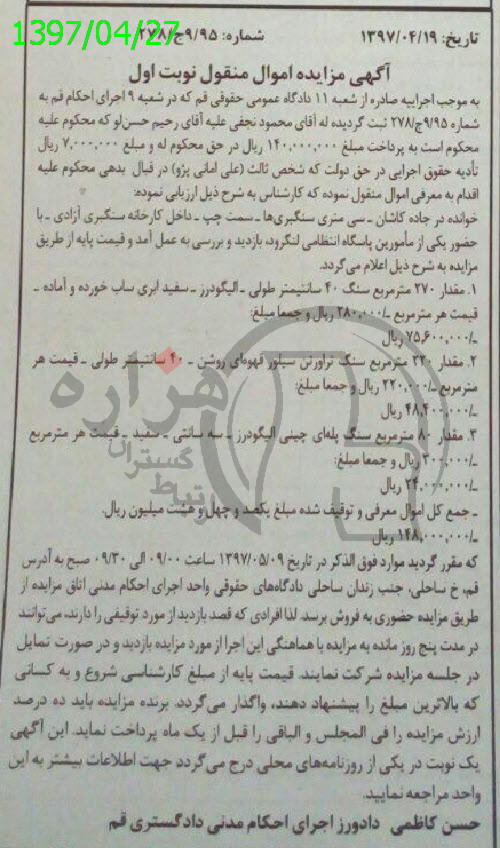 1397/04/27
تاریخ: ۱۳۹۷/۰۴/۱۹ شماره: ۹/۹۵ج/۲۷۸
آگهی مزایده اموال منقول نوبت اول
به موجب اجراییه صادره از شعبه ۱۱ دادگاه عمومی حقوقی قم که در شعبه ۹ اجرای احکام قم به
شماره ۹/۹۵ج/۲۷۸ ثبت گردیده له آقای محمود نجفی علیه آقای رحیم حسن‌لو که محکوم علیه
محکوم است به پرداخت مبلغ ۱۴۰,۰۰۰,۰۰۰ ریال در حق محکوم له و مبلغ ۷,۰۰۰,۰۰۰ ریال
تأدیه حقوق اجرایی در حق دولت که شخص ثالث (علی امانی پژو) در قبال بدهی محکوم علیه
اقدام به معرفی اموال منقول نموده که کارشناس به شرح ذیل ارزیابی نموده:
خوانده در جاده کاشان ـ سی متری سنگبری‌ها ـ سمت چپ ـ داخل کارخانه سنگبری آزادی ـ با
حضور یکی از مأمورین پاسگاه انتظامی لنگرود، بازدید و بررسی به عمل آمد و قیمت پایه از طریق
مزایده به شرح ذیل اعلام می‌گردد.
۱. مقدار ۲۷۰ مترمربع سنگ ۴۰ سانتیمتر طولی ـ الیگودرز ـ سفید ابری ساب خورده و آماده ـ
قیمت هر مترمربع ـ/۲۸۰,۰۰۰ ریال و جمعا مبلغ:
ـ/۷۵,۶۰۰,۰۰۰ ریال
۲. مقدار ۲۲۰ مترمربع سنگ تراورتن سیلور قهوه‌ای روشن ـ ۴۰ سانتیمتر طولی ـ قیمت هر
مترمربع ـ/۲۲۰,۰۰۰ ریال و جمعا مبلغ:
ـ/۴۸,۴۰۰,۰۰۰ ریال
۳. مقدار ۸۰ مترمربع سنگ پله‌ای چینی الیگودرز ـ سه سانتی ـ سفید ـ قیمت هر مترمربع
ـ/۳۰۰,۰۰۰ ریال و جمعا مبلغ:
ـ/۲۴,۰۰۰,۰۰۰ ریال
ـ جمع کل اموال معرفی و توقیف شده مبلغ یکصد و چهل و هشت میلیون ریال.
ـ/۱۴۸,۰۰۰,۰۰۰ ریال
که مقرر گردید موارد فوق الذکر در تاریخ ۱۳۹۷/۰۵/۰۹ ساعت ۰۹/۰۰ الی ۰۹/۳۰ صبح به آدرس
قم، خ ساحلی، جنب زندان ساحلی دادگاه‌های حقوقی واحد اجرای احکام مدنی اتاق مزایده از
طریق مزایده حضوری به فروش برسد. لذا افرادی که قصد بازدید از مورد توقیفی را دارند، می‌توانند
در مدت پنج روز مانده به مزایده با هماهنگی این اجرا از مورد مزایده بازدید و در صورت تمایل
در جلسه مزایده شرکت نمایند. قیمت پایه از مبلغ کارشناسی شروع و به کسانی
که بالاترین مبلغ را پیشنهاد دهند، واگذار می‌گردد. برنده مزایده باید ده درصد
ارزش مزایده را فی المجلس و الباقی را قبل از یک ماه پرداخت نماید. این آگهی
یک نوبت در یکی از روزنامه‌های محلی درج می‌گردد. جهت اطلاعات بیشتر به این
واحد مراجعه نمایید.
حسن کاظمی دادورز اجرای احکام مدنی دادگستری قم
هزاره
گستران
ارتباط